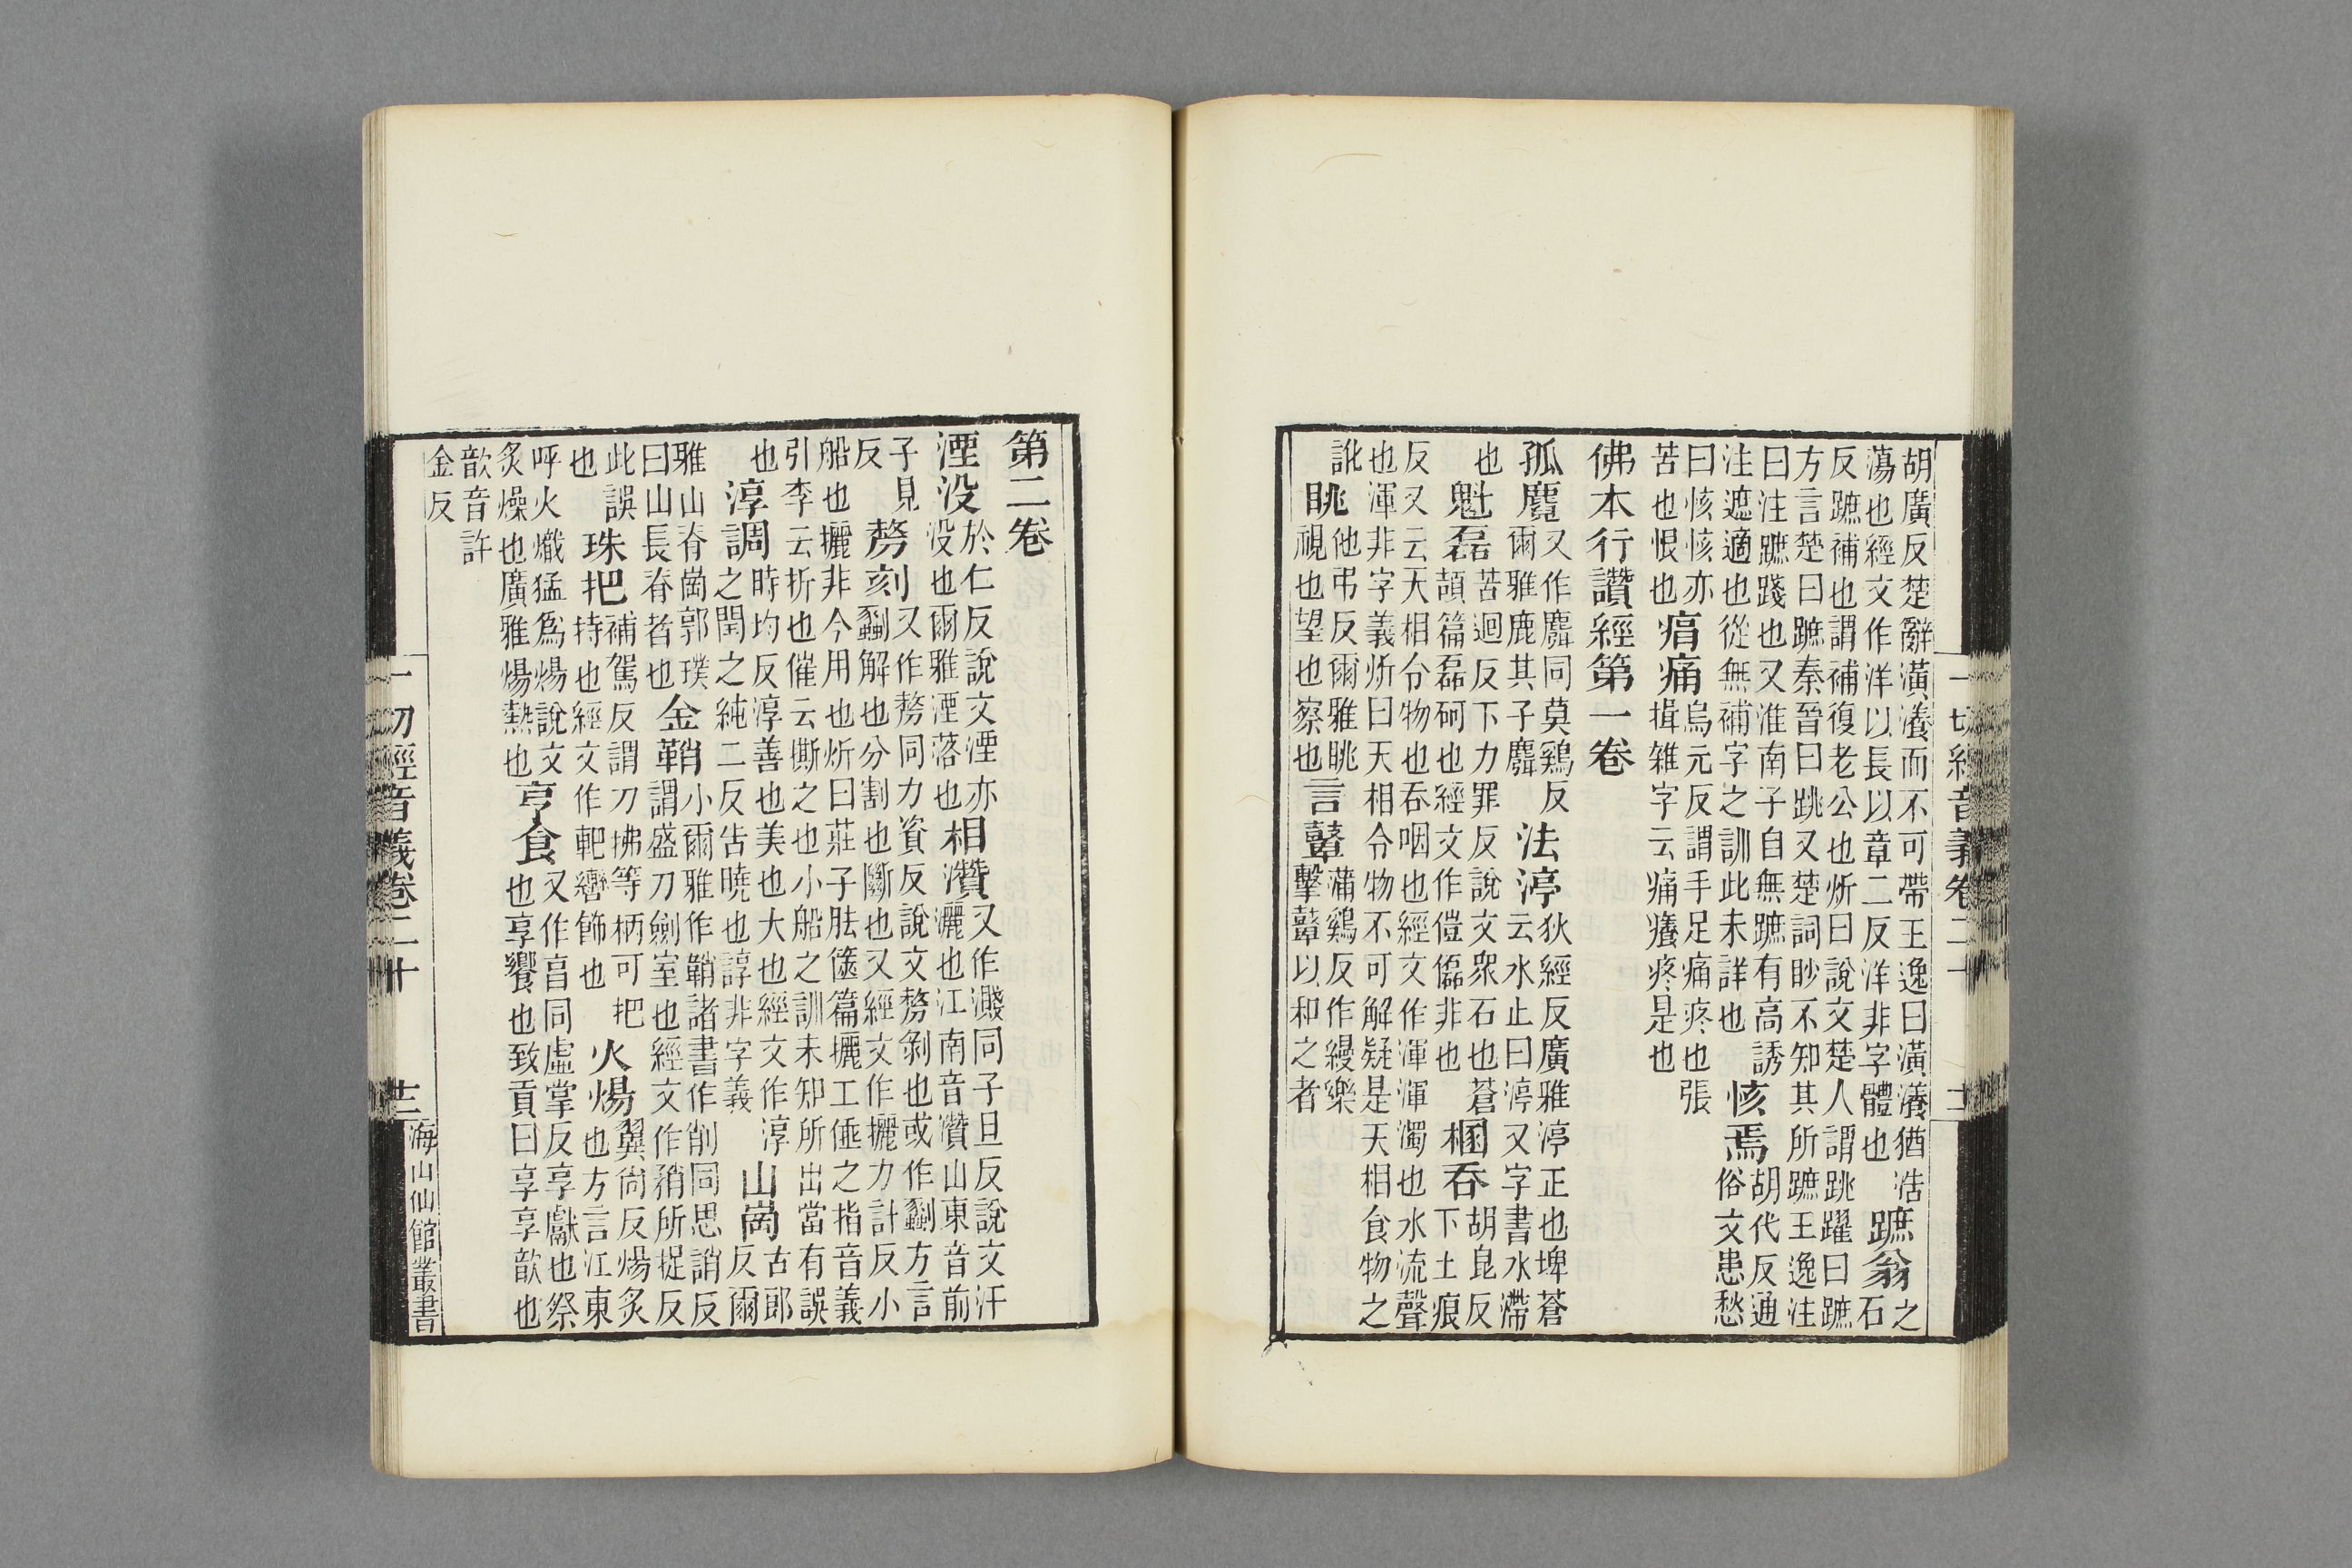 一切經音義卷二十
胡廣反楚辭潢瀁而不可帶王逸曰潢瀁猶浩蕩也經文作洋以長以章二反洋非字體也蹠翁之石
反蹠補也謂補復老公也炘曰說文楚人謂跳躍曰蹠方言楚曰蹠秦晉曰跳又楚詞眇不知其所蹠王逸注
曰注蹠踐也又淮南子自無蹠有高誘注遮適也從無補字之訓此未詳也㤥焉胡代反通俗文患愁
曰㤥㤥亦苦也恨也痟痛烏元反謂手足痛疼也張揖雜字云痛癢疼是也
佛本行讚經第一卷
孤麑又作麛同莫鷄反爾雅鹿其子麛法渟狄經反廣雅渟正也埤蒼云水止曰渟又字書水滯
也魁磊苦迴反下力罪反說文衆石也蒼頡篇磊砢也經文作傀儡非也棞吞胡昆反下土痕
反又云天相分物也吞咽也經文作渾渾濁也水流聲也渾非字義炘曰天相令物不可解疑是天相食物之
訛眺他弔反爾雅眺視也望也察也言鼙蒲鷄反作縵樂擊鼙以和之者
第二卷
湮没於仁反說文湮亦没也爾雅湮落也相灒又作濺同子旦反說文汙灑也江南音灒山東音前
子見反剺刻又作剺同力資反說文剺剝也或作㔧方言㔧解也分割也斷也又經文作攦力計反小
船也攦非今用也炘曰莊子胠篋篇攦工倕之指音義引李云折也催云撕之也小船之訓未知所出當有誤
也淳調時均反淳善也美也大也經文作淳之閏之純二反告曉也諄非字義山崗古郎反爾
雅山脊崗郭璞曰山長脊者也金鞘小爾雅作鞘諸書作削同思誚反謂盛刀劍室也經文作矟所捉反
此誤也珠把補駕反謂刀拂等柄可把持也經文作靶轡飾也火煬翼尙反煬炙也方言江東
呼火熾猛爲煬說文炙燥也廣雅煬熱也亨食又作亯同虛掌反享獻也祭也享饗也致貢曰享享歆也
歆音許金反
一切經音義卷二十
海山仙館叢書